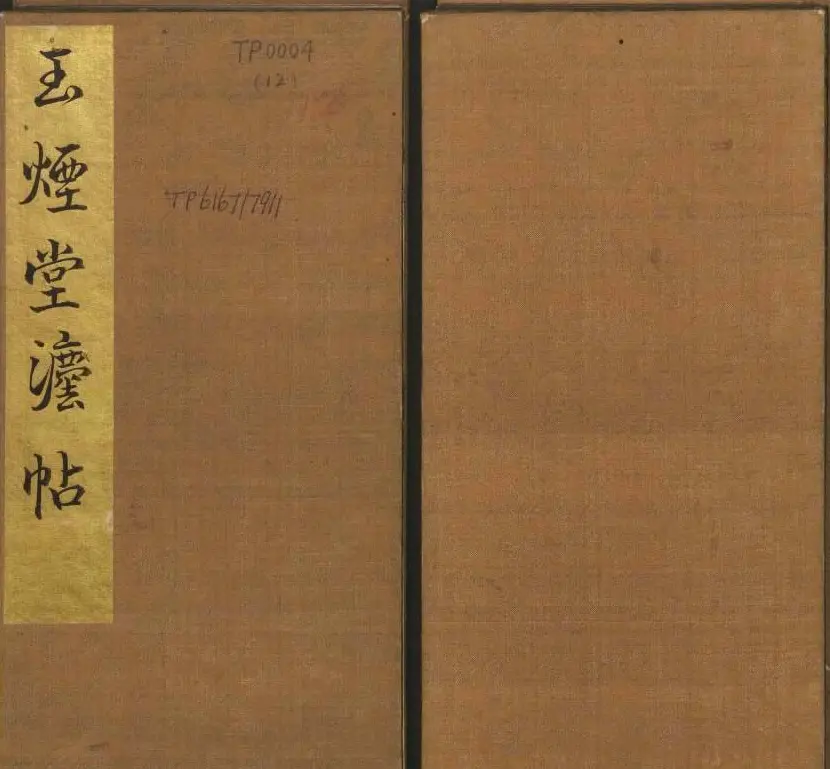 玉煙堂灋帖
TP0004
(12)
TP6167/7911